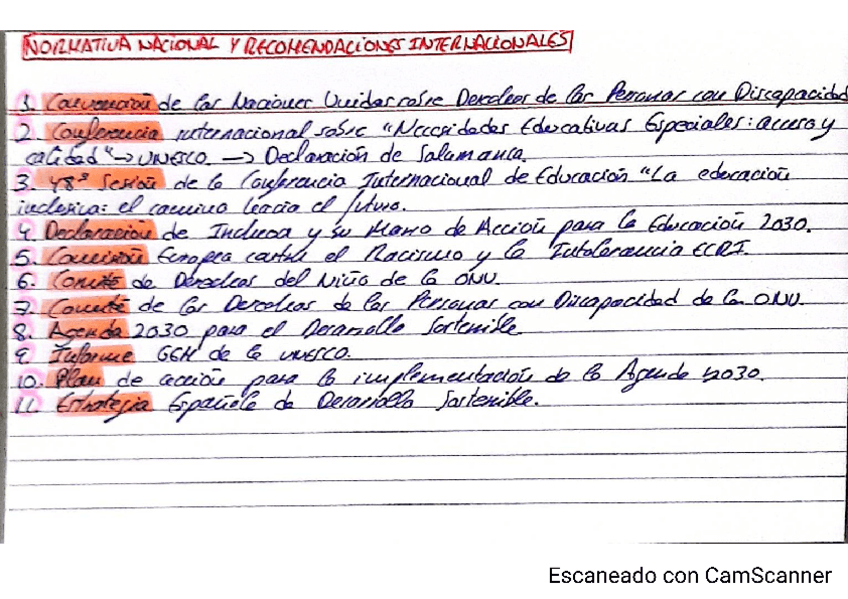 NORMATIVA NACIONAL Y RECOMENDACIONES INTERNACIONALES
1. Convención de las Naciones Unidas sobre Derechos de las Personas con Discapacidad
2. Conferencia internacional sobre "Necesidades Educativas Especiales: acceso y
calidad" → UNESCO → Declaración de Salamanca.
3. 48ª Sesión de la Conferencia Internacional de Educación "La educación
inclusiva: el camino hacia el futuro.
4. Declaración de Incheon y su Marco de Acción para la Educación 2030.
5. Comisión Europea contra el Racismo y la Intolerancia ECRI.
6. Comité de Derechos del Niño de la ONU.
7. Comité de los Derechos de las Personas con Discapacidad de la ONU.
8. Agenda 2030 para el Desarrollo Sostenible
9. Informe GEM de la UNESCO.
10. Plan de acción para la implementación de la Agenda 2030.
11. Estrategia Española de Desarrollo Sostenible.
Escaneado con CamScanner